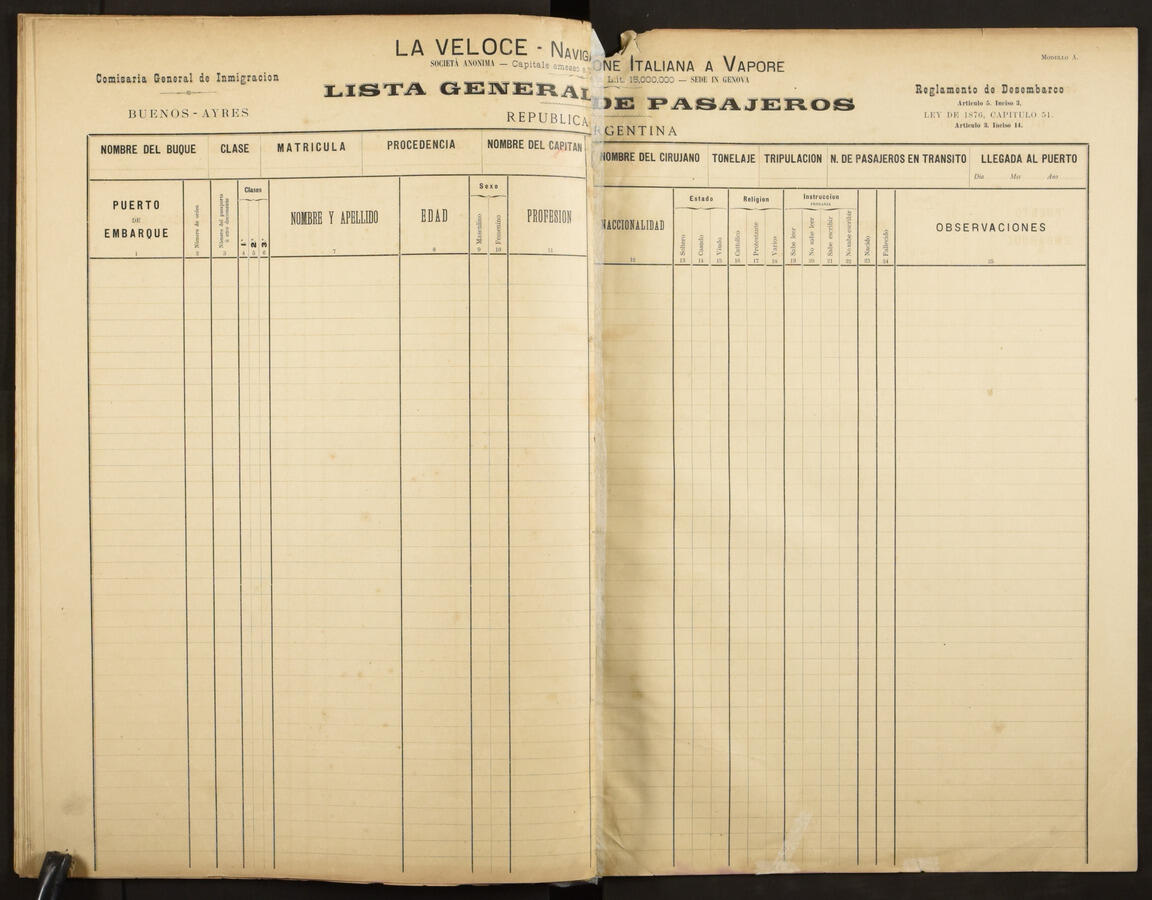 LA VELOCE - NAVIG
ONE ITALIANA A VAPORE
SOCIETÀ ANONIMA — Capitale emesso e
Lit. 15,000,000 — SEDE IN GENOVA
MODULO A.
Comisaria General de Inmigracion
BUENOS-AYRES
LISTA GENERAL DE PASAJEROS
REPUBLICA ARGENTINA
Reglamento de Desembarco
Articulo 5. Inciso 3.
LEY DE 1876, CAPITULO 51.
Articulo 3. Inciso 14.
NOMBRE DEL BUQUE CLASE MATRICULA PROCEDENCIA NOMBRE DEL CAPITAN NOMBRE DEL CIRUJANO TONELAJE TRIPULACION N. DE PASAJEROS EN TRANSITO LLEGADA AL PUERTO
Dia Mes Ano
PUERTO
DE
EMBARQUE
Número de orden
Número del pasaporte
ú otro documento
Clases
1.ª 2.ª 3.ª
NOMBRE Y APELLIDO
EDAD
Sexo
Masculino
Femenino
PROFESION
NACCIONALIDAD
Estado
Soltero
Casado
Viudo
Religion
Cattolico
Protestante
Varios
Instruccion
PRIMARIA
Sabe leer
No sabe leer
Sabe escribir
No sabe escribir
Nacido
Fallecido
OBSERVACIONES
1 2 3 4 5 6 7 8 9 10 11 12 13 14 15 16 17 18 19 20 21 22 23 24 25